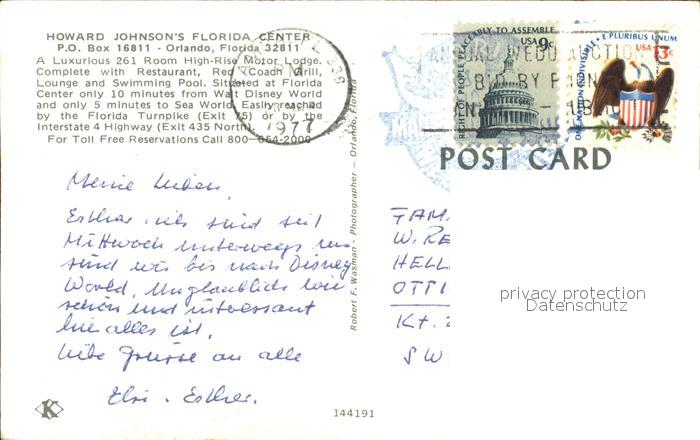 HOWARD JOHNSON'S FLORIDA CENTER
P.O. Box 16811 - Orlando, Florida 32811
A Luxurious 261 Room High-Rise Motor Lodge.
Complete with Restaurant, Red Coach Grill,
Lounge and Swimming Pool. Situated at Florida
Center only 10 minutes from Walt Disney World
and only 5 minutes to Sea World. Easily reached
by the Florida Turnpike (Exit 75) or by the
Interstate 4 Highway (Exit 435 North).
For Toll Free Reservations Call 800-654-2000
1977
RIGHT OF PEOPLE PEACEABLY TO ASSEMBLE
USA 9c
ONE NATION INDIVISIBLE • E PLURIBUS UNUM
USA 13c
POST CARD
Meine Lieben,
Esther + ich sind seit
Mittwoch unterwegs nun
sind wir bis nach Disney
World. Unglaublich wie
schön und interessant
hier alles ist.
Liebe Grüsse an alle
Elsi + Esther.
Robert F. Wasman - Photographer - Orlando, Florida
FAM.
W. RE
HELL
OTTI
Kt.
SW
privacy protection
Datenschutz
K
144191